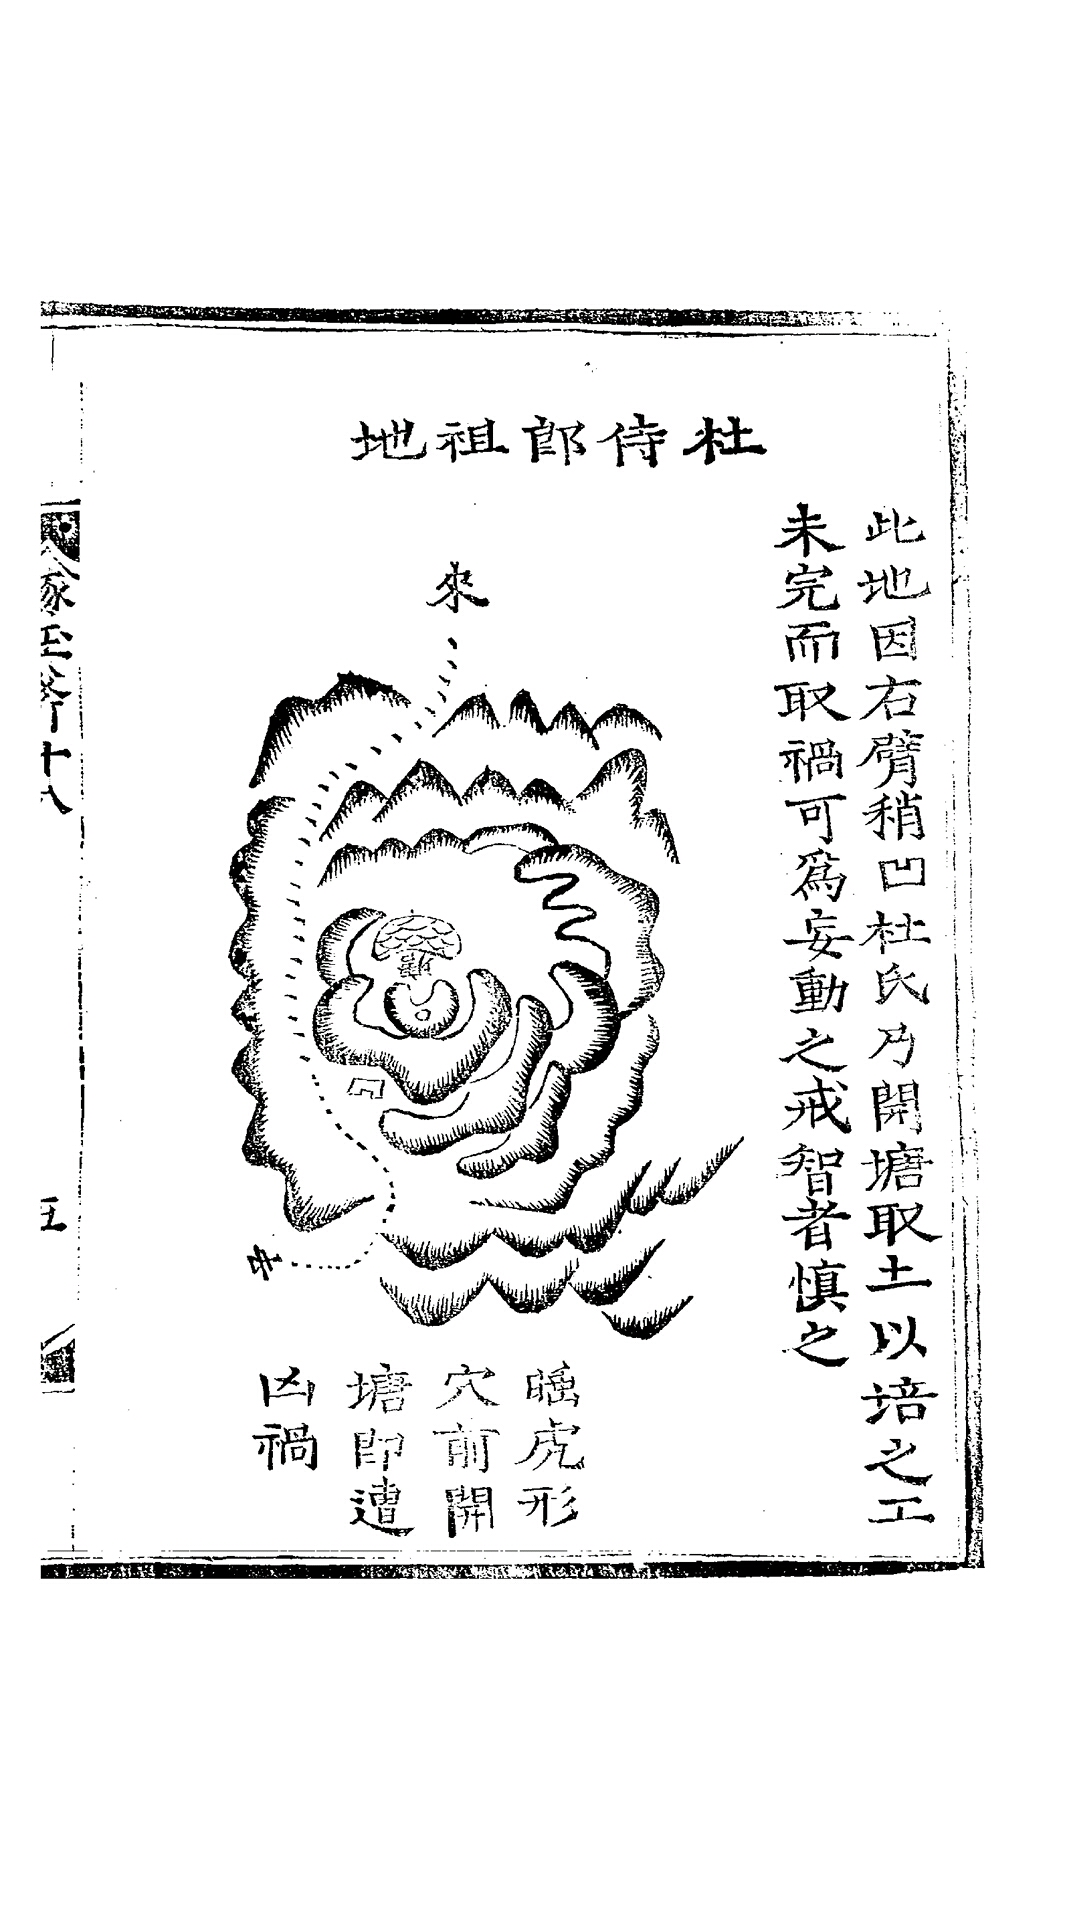 杜侍郎祖地
此地因右臂稍凹杜氏乃開塘取土以培之工
未完而取禍可爲妄動之戒智者慎之
來
去
虎形
穴前開
塘即遭
凶禍
琢玉斧十八
五